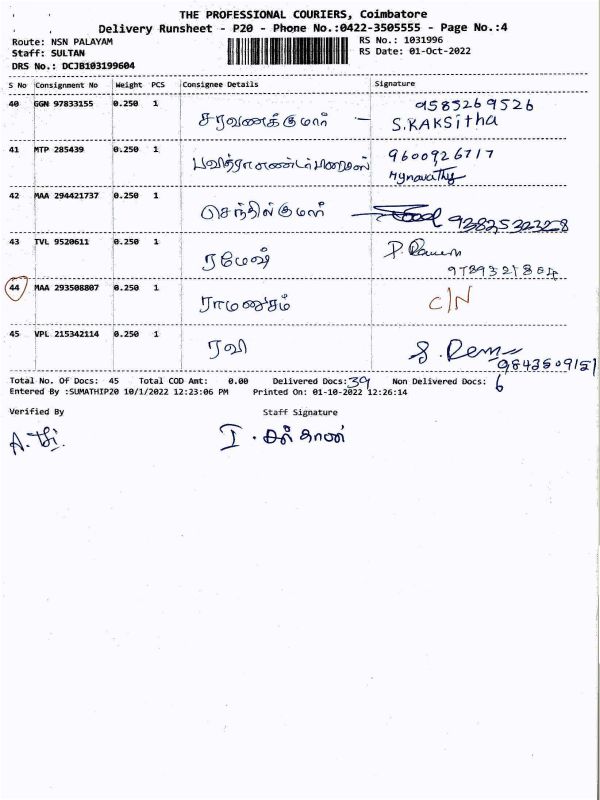 THE PROFESSIONAL COURIERS, Coimbatore
Delivery Runsheet - P20 - Phone No.:0422-3505555 - Page No.:4
Route: NSN PALAYAM RS No.: 1031996
Staff: SULTAN RS Date: 01-Oct-2022
DRS No.: DCJB103199604
S No Consignment No Weight PCS Consignee Details Signature
40 GGN 97833155 0.250 1 சரவணக்குமார் 9585269526
S.RAKSitha
41 MTP 285439 0.250 1 9600926717
Mynavathy
42 MAA 294421737 0.250 1 செந்தில்குமார் 9382532328
43 TVL 9520611 0.250 1 ரமேஷ்
9789321804
44 MAA 293508807 0.250 1 C/N
45 VPL 215342114 0.250 1 ரவி
9843509151
Total No. Of Docs: 45 Total COD Amt: 0.00 Delivered Docs: 39 Non Delivered Docs: 6
Entered By :SUMATHIP20 10/1/2022 12:23:06 PM Printed On: 01-10-2022 12:26:14
Verified By Staff Signature